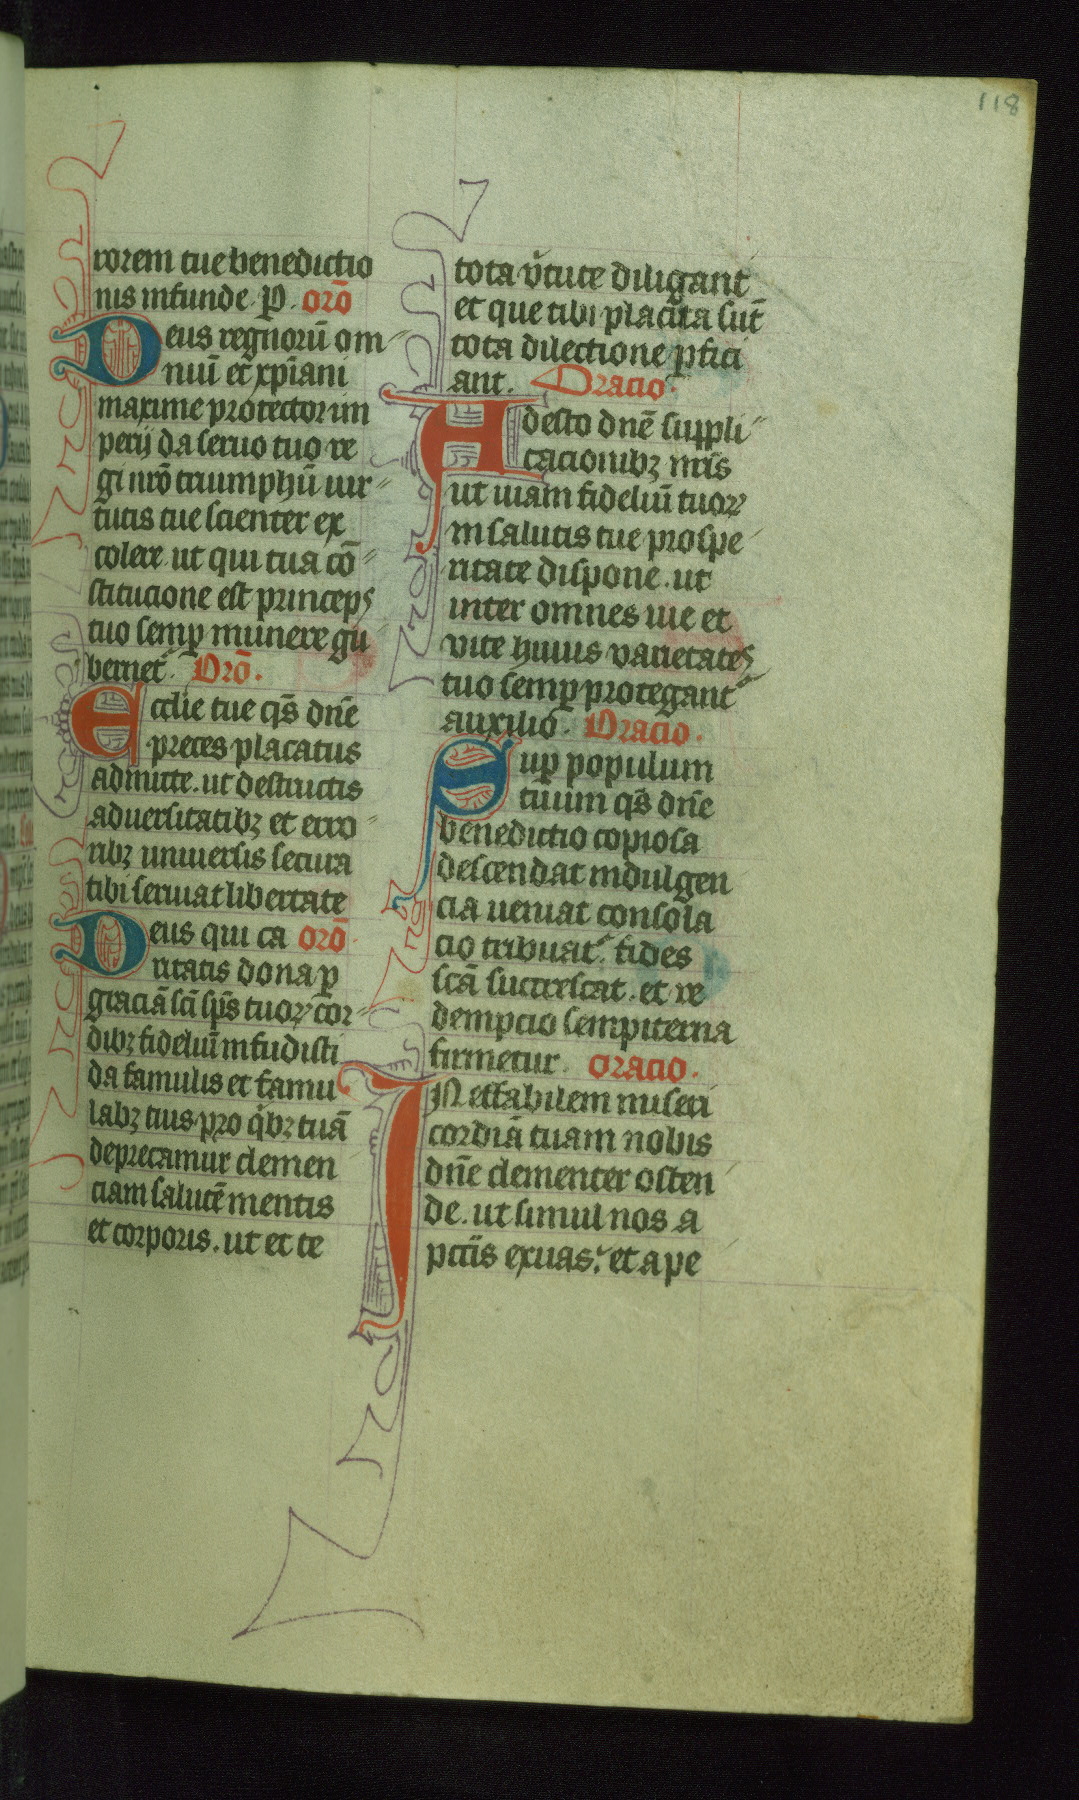 118
rorem tue benedictio
nis infunde. P. orō
Deus regnorū om
niū et xp̄iani
maxime protector im
perij da seruo tuo re
gi nr̄o triumphū uir
tutis tue scienter ex
colere. ut qui tua cō
stitucione est princeps
tuo semꝑ munere gu
bernet᷑. Orō.
Ecclīe tue qs̄ dn̄e
preces placatus
admitte. ut destructis
aduersitatibꝫ et erro
ribꝫ uniuersis secura
tibi seruiat libertate
Deus qui ca orō.
ritatis dona ꝑ
graciā sc̄i sp̄s tuoꝝ cor
dibꝫ fideliū infudisti
da famulis et famu
labꝫ tuis pro qͥbꝫ tuā
deprecamur clemen
ciam salutē mentis
et corporis. ut et te
tota v̓tute diligant
et que tibi placita sūt
tota dilectione ꝑfici
ant. Oracio.
Adesto dn̄e suppli
cacionibꝫ nr̄is
ut uiam fideliū tuoꝝ
in salutis tue prospe
ritate dispone. ut
inter omnes uie et
vite huius varietates
tuo semꝑ protegant᷑
auxilio. Oracio.
Suꝑ populum
tuum qs̄ dn̄e
benedictio copiosa
descendat indulgen
cia ueniat consola
cio tribuat᷑. fides
scā succrescat. et re
dempcio sempiterna
firmetur. oracio.
INeffabilem miseri
cordiā tuam nobis
dn̄e clementer osten
de. ut simul nos a
pccīs exuas. et a pe